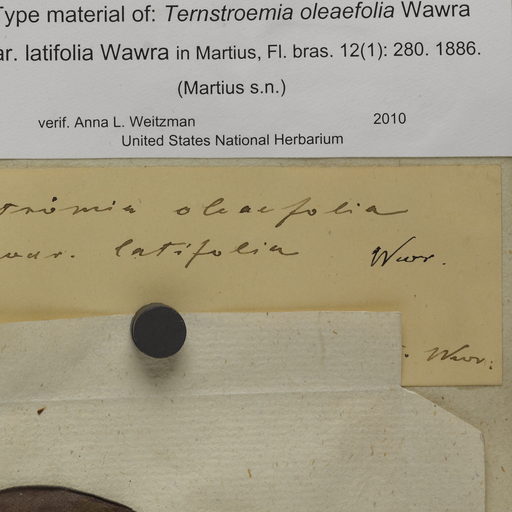 Type material of: Ternstroemia oleaefolia Wawra
ar. latifolia Wawra in Martius, Fl. bras. 12(1): 280. 1886.
(Martius s.n.)
verif. Anna L. Weitzman 2010
United States National Herbarium
trömia oleaefolia
var. latifolia Wwr.
Wwr.